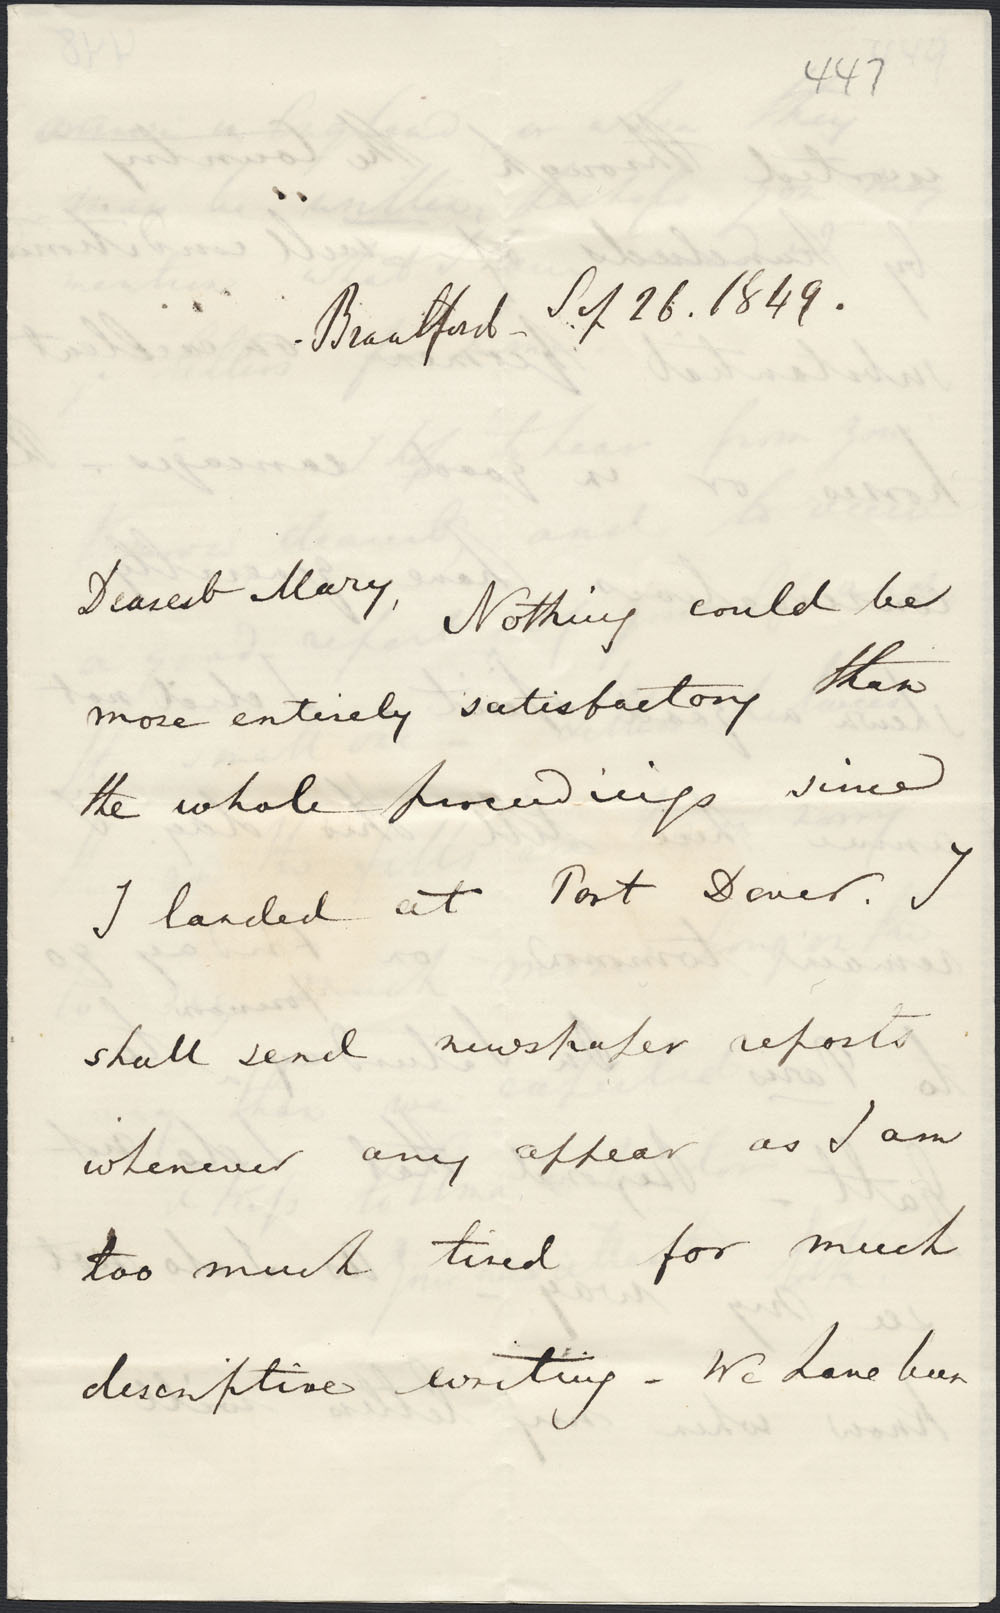 447
Brantford - Sep 26. 1849.
Dearest Mary, Nothing could be
more entirely satisfactory than
the whole proceedings since
I landed at Port Dover. I
shall send newspaper reports
whenever any appear as I am
too much tired for much
descriptive writing - We have been